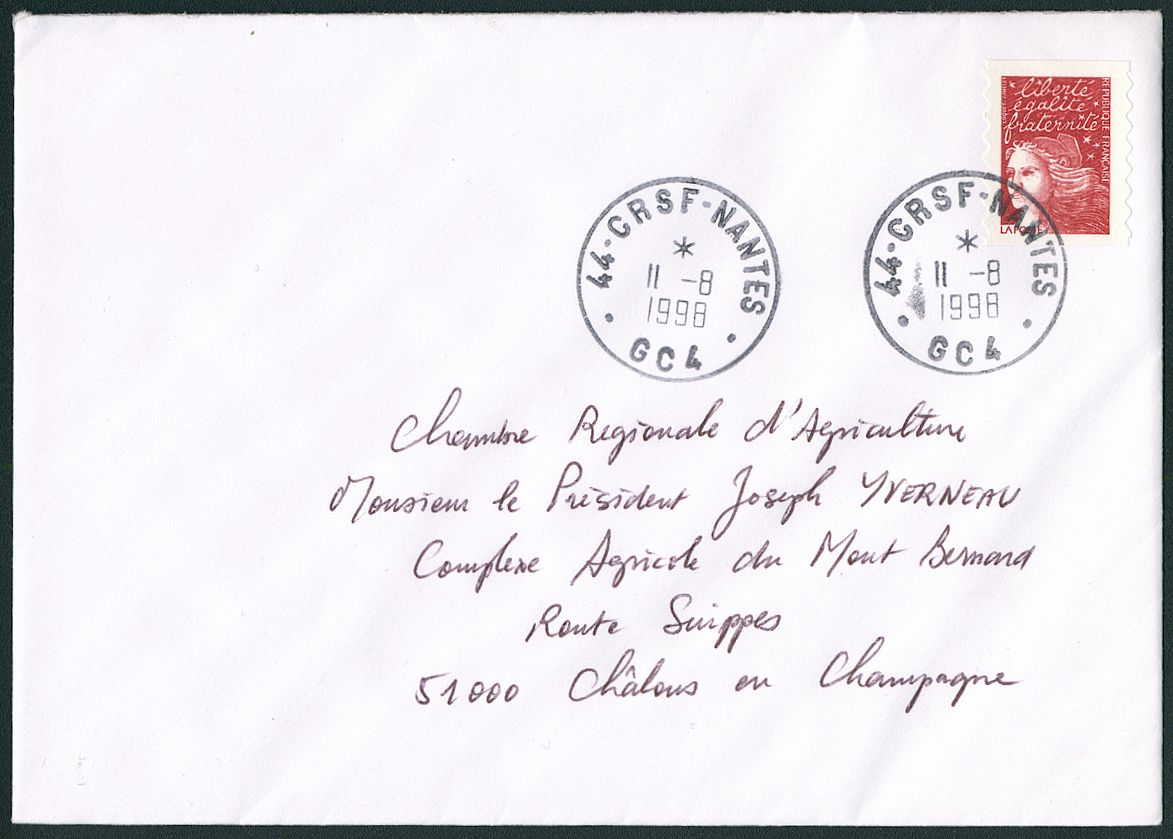 liberté
égalité
fraternité
RÉPUBLIQUE FRANÇAISE
LA POSTE
44-CRSF-NANTES
*
11 -8
1998
GC4
44-CRSF-NANTES
*
11 -8
1998
GC4
Chambre Regionale d'Agriculture
Monsieur le Président Joseph YVERNEAU
Complexe Agricole du Mont Bernard
Route Suippes
51000 Châlons en Champagne